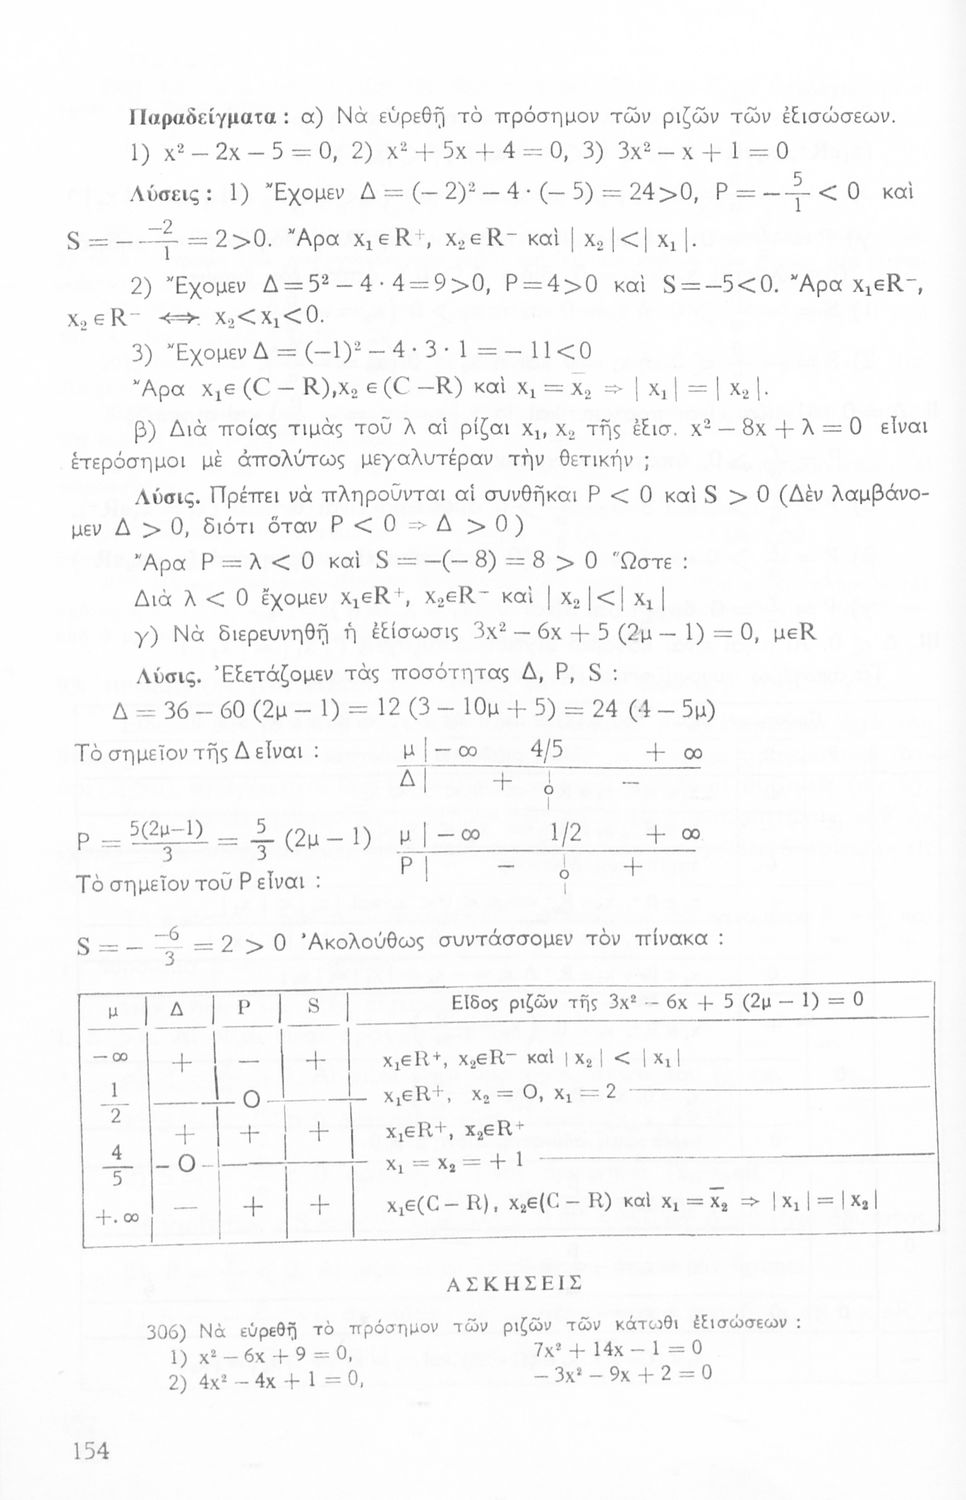 Παραδείγματα : α) Νὰ εὑρεθῇ τὸ πρόσημον τῶν ριζῶν τῶν ἐξισώσεων.
1) x² — 2x — 5 = 0, 2) x² + 5x + 4 = 0, 3) 3x² — x + 1 = 0
Λύσεις : 1) Ἔχομεν Δ = (— 2)² — 4 · (— 5) = 24>0, P = — 5/1 < 0 καὶ
S = — —2/1 = 2>0. Ἄρα x₁εR⁺, x₂εR⁻ καὶ | x₂ |<| x₁ |.
2) Ἔχομεν Δ = 5² — 4 · 4 = 9>0, P = 4>0 καὶ S = —5<0. Ἄρα x₁εR⁻,
x₂εR⁻ <=> x₂<x₁<0.
3) Ἔχομεν Δ = (—1)² — 4 · 3 · 1 = — 11<0
Ἄρα x₁ε (C — R),x₂ ε (C —R) καὶ x₁ = x̄₂ => | x₁ | = | x₂ |.
β) Διὰ ποίας τιμὰς τοῦ λ αἱ ρίζαι x₁, x₂ τῆς ἐξισ. x² — 8x + λ = 0 εἶναι
ἑτερόσημοι μὲ ἀπολύτως μεγαλυτέραν τὴν θετικήν ;
Λύσις. Πρέπει νὰ πληροῦνται αἱ συνθῆκαι P < 0 καὶ S > 0 (Δὲν λαμβάνο-
μεν Δ > 0, διότι ὅταν P < 0 => Δ > 0 )
Ἄρα P = λ < 0 καὶ S = —(— 8) = 8 > 0 Ὥστε :
Διὰ λ < 0 ἔχομεν x₁εR⁺, x₂εR⁻ καὶ | x₂ |<| x₁ |
γ) Νὰ διερευνηθῇ ἡ ἐξίσωσις 3x² — 6x + 5 (2μ — 1) = 0, μεR
Λύσις. Ἐξετάζομεν τὰς ποσότητας Δ, P, S :
Δ = 36 — 60 (2μ — 1) = 12 (3 — 10μ + 5) = 24 (4 — 5μ)
Τὸ σημεῖον τῆς Δ εἶναι : μ | — ∞ 4/5 + ∞
Δ | + 0 —
P = 5(2μ—1)/3 = 5/3 (2μ — 1) μ | — ∞ 1/2 + ∞
Τὸ σημεῖον τοῦ P εἶναι : P | — 0 +
S = — —6/3 = 2 > 0 Ἀκολούθως συντάσσομεν τὸν πίνακα :
μ | Δ | P | S | Εἶδος ριζῶν τῆς 3x² — 6x + 5 (2μ — 1) = 0
— ∞ + — + x₁εR⁺, x₂εR⁻ καὶ | x₂ | < | x₁ |
1/2 0 x₁εR⁺, x₂ = 0, x₁ = 2
+ + + x₁εR⁺, x₂εR⁺
4/5 0 x₁ = x₂ = + 1
+ ∞ — + + x₁ε(C — R), x₂ε(C — R) καὶ x₁ = x̄₂ => | x₁ | = | x₂ |
ΑΣΚΗΣΕΙΣ
306) Νὰ εὑρεθῇ τὸ πρόσημον τῶν ριζῶν τῶν κάτωθι ἐξισώσεων :
1) x² — 6x + 9 = 0, 7x² + 14x — 1 = 0
2) 4x² — 4x + 1 = 0, — 3x² — 9x + 2 = 0
154